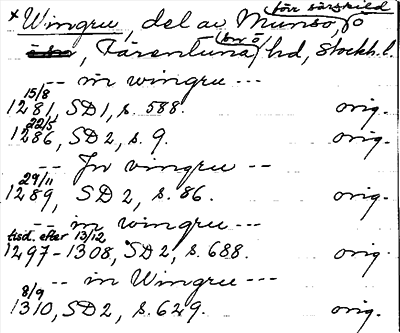 förr särskild
* Wingru, del av Munsö, ö
(nu ö)
Färentuna hd, Stockh. l.
-- in wingru --
15/8
1281, SD1, s. 588. orig.
22/5
1286, SD 2, s. 9. orig.
-- In vingru ---
29/11
1289, SD 2, s. 86. orig.
-- in wingru --
tisd. efter 13/12
1297-1308, SD 2, s. 688. orig.
-- in Wingru ---
8/9
1310, SD 2, s. 649. orig.